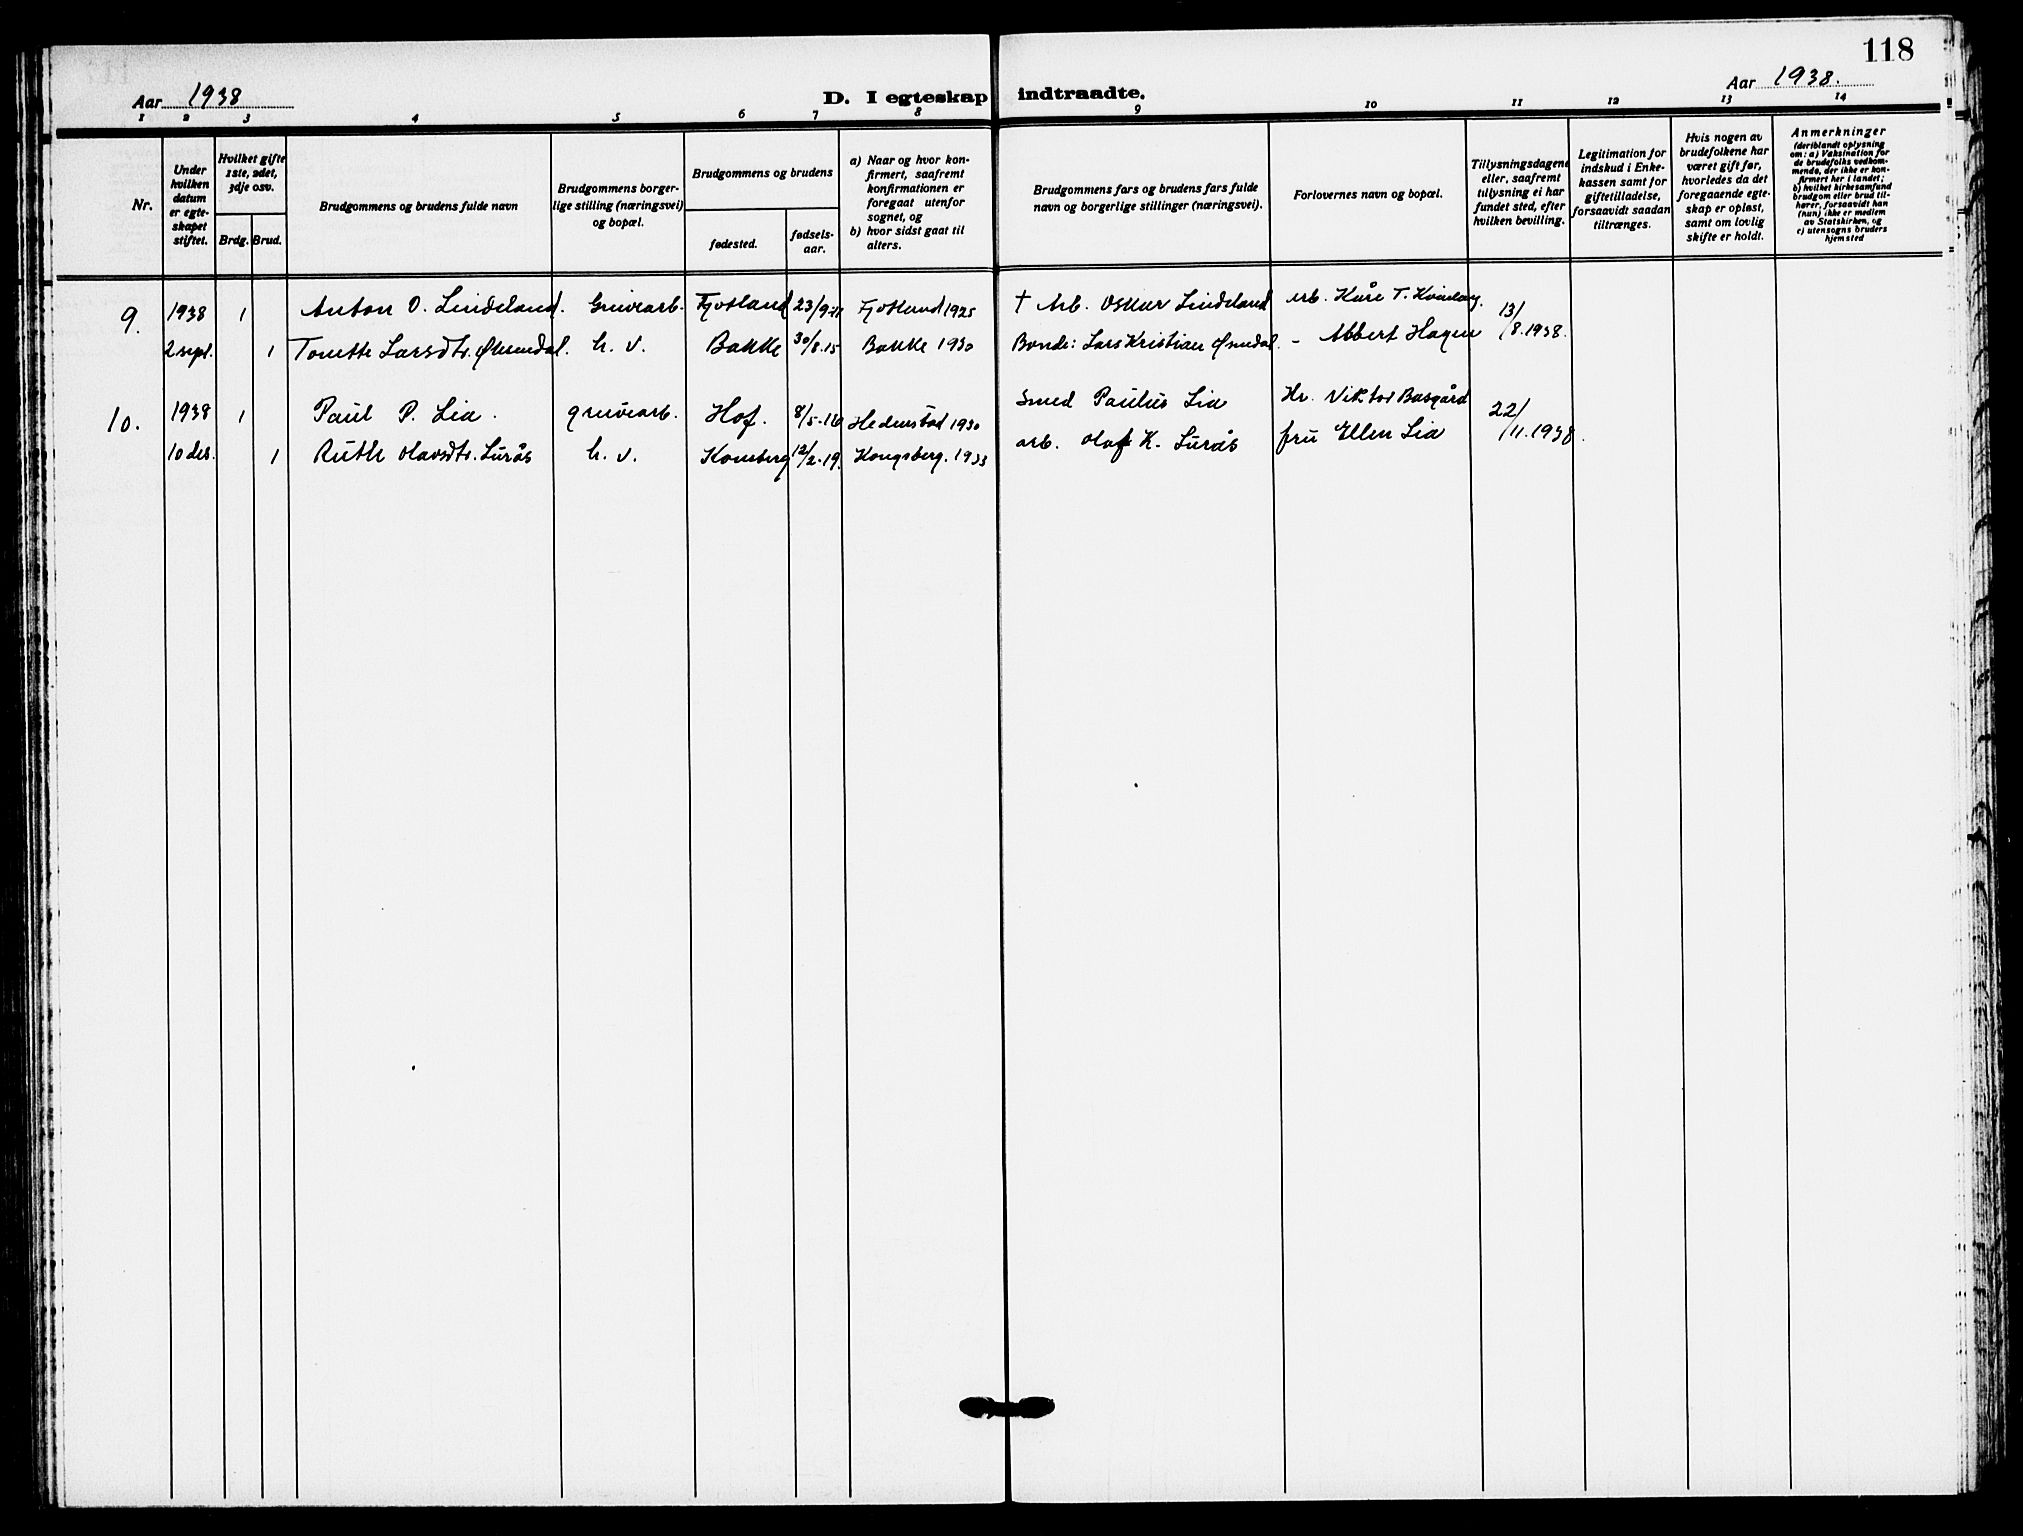 118
Aar 1938
D. I egteskap indtraadte.
Aar 1938.
1 2 3 4 5 6 7 8 9 10 11 12 13 14
Nr.
Under hvilken datum er egteskapet stiftet.
Hvilket gifte 1ste, 2det, 3dje osv.
Brdg. Brud.
Brudgommens og brudens fulde navn
Brudgommens borgerlige stilling (næringsvei) og bopæl.
Brudgommens og brudens
fødested.
fødselsaar.
a) Naar og hvor konfirmert, saafremt konfirmationen er foregaat utenfor sognet, og
b) hvor sidst gaat til alters.
Brudgommens fars og brudens fars fulde navn og borgerlige stillinger (næringsvei).
Forlovernes navn og bopæl.
Tillysningsdagene eller, saafremt tillysning ei har fundet sted, efter hvilken bevilling.
Legitimation for indskud i Enkekassen samt for giftetilladelse, forsaavidt saadan tiltrænges.
Hvis nogen av brudefolkene har været gift før, hvorledes da det foregaaende egteskap er opløst, samt om lovlig skifte er holdt.
Anmerkninger
(deriblandt oplysning om: a) Vaksination for de brudefolks vedkommende, der ikke er konfirmert her i landet;
b) hvilket kirkesamfund brudgom eller brud tilhører, forsaavidt han (hun) ikke er medlem av Statskirken, og
c) utensogns bruders hjemsted
9. 1938 1 Anton O. Lindeland. Gruvearb. Fjotland 23/9-11 Fjotland 1925 † Arb. Oskar Lindeland arb. Kåre T. 13/8.1938.
2 sept. 1 Tonette Larsdtr. h. v. Bakke 30/8.15 Bakke 1930 Bonde: Lars Kristian - Albert Hagen
10. 1938 1 Paul P. Lia. gruvearb. Hof. 8/5-16 Hedenstad 1930 Smed Paulus Lia Hr. Viktor Basgård 22/11.1938.
10 des. 1 Ruth Olavsdtr. Lurås h. v. Konsberg 12/2-19. Kongsberg. 1933 arb. Olaf K. Lurås fru Ellen Lia